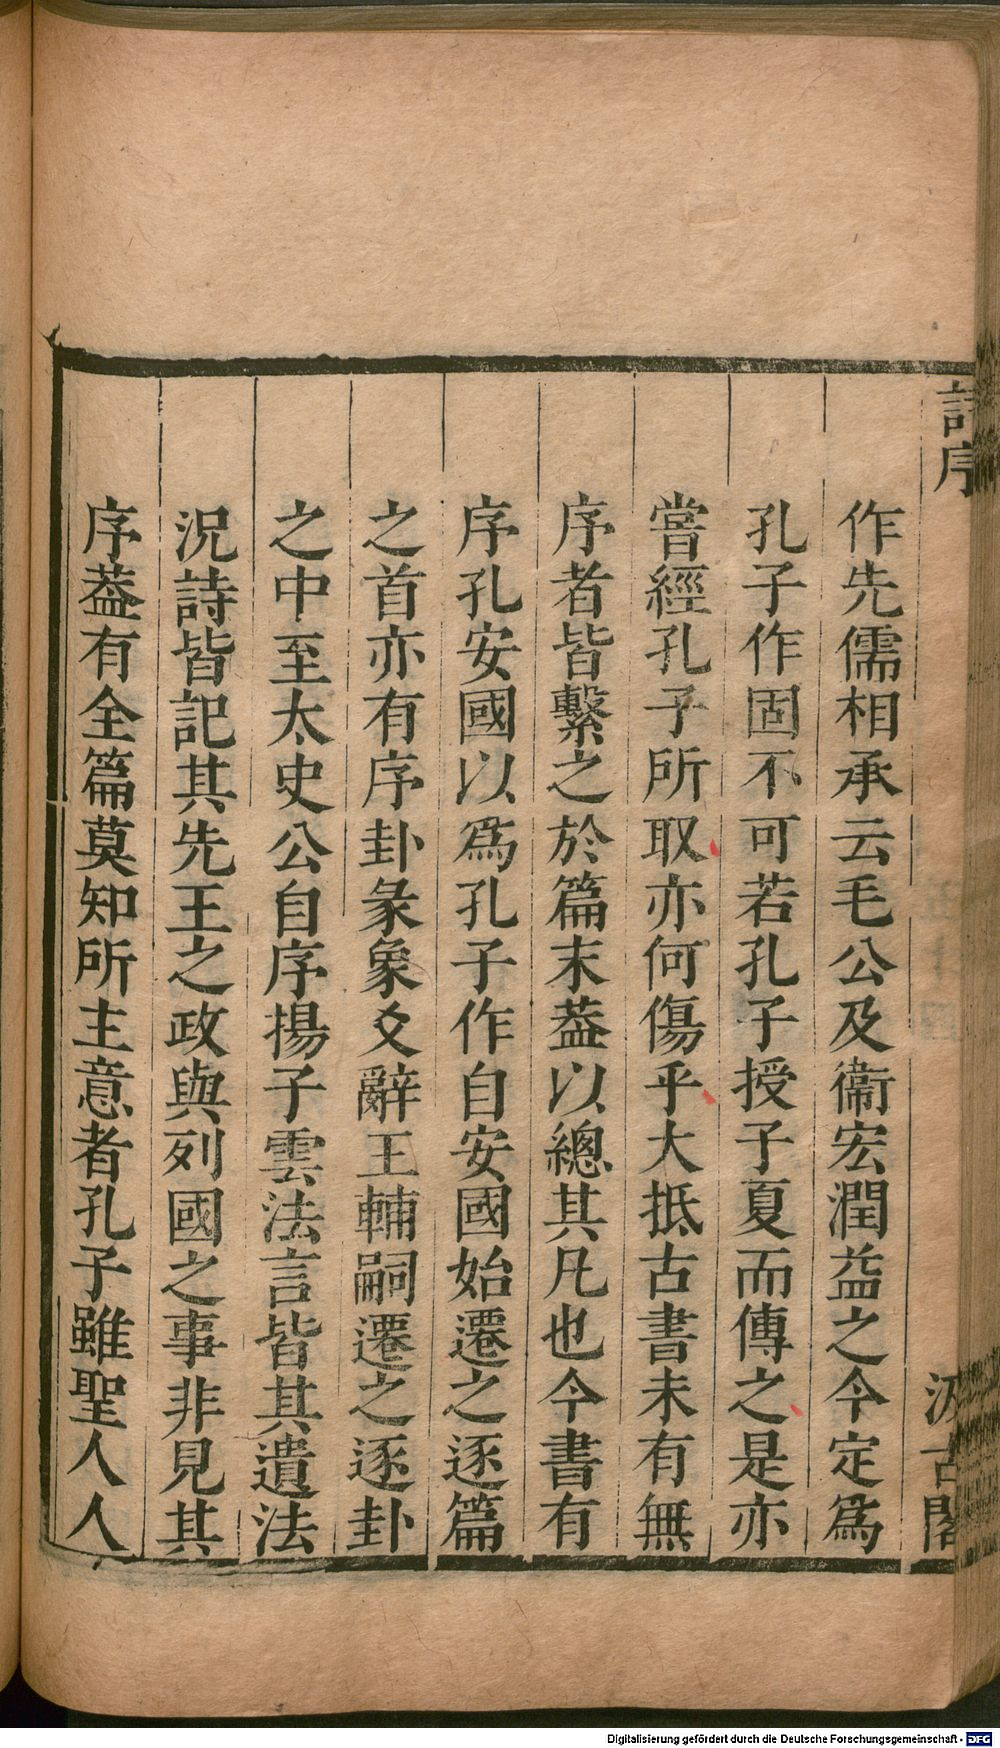 詩序
汲古閣
作先儒相承云毛公及衞宏潤益之今定爲
孔子作固不可若孔子授子夏而傳之是亦
嘗經孔子所取亦何傷乎大抵古書未有無
序者皆繫之於篇末葢以總其凡也今書有
序孔安國以爲孔子作自安國始遷之逐篇
之首亦有序卦彖象爻辭王輔嗣遷之逐卦
之中至太史公自序揚子雲法言皆其遺法
况詩皆記其先王之政與列國之事非見其
序葢有全篇莫知所主意者孔子雖聖人人
Digitalisierung gefördert durch die Deutsche Forschungsgemeinschaft - DFG